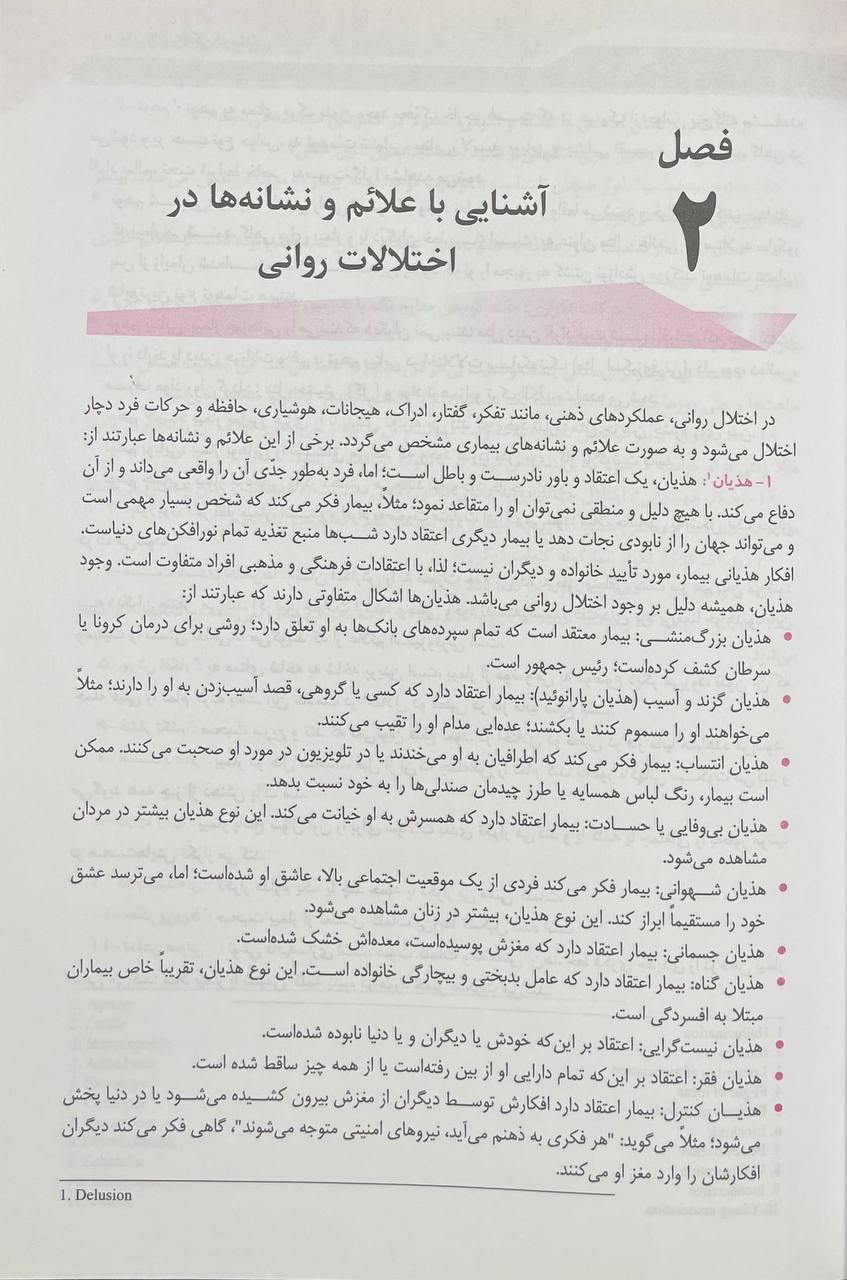 فصل
۲
آشنایی با علائم و نشانه‌ها در
اختلالات روانی
در اختلال روانی، عملکردهای ذهنی، مانند تفکر، گفتار، ادراک، هیجانات، هوشیاری، حافظه و حرکات فرد دچار
اختلال می‌شود و به صورت علائم و نشانه‌های بیماری مشخص می‌گردد. برخی از این علائم و نشانه‌ها عبارتند از:
۱- هذیان۱: هذیان، یک اعتقاد و باور نادرست و باطل است؛ اما، فرد به‌طور جدّی آن را واقعی می‌داند و از آن
دفاع می‌کند. با هیچ دلیل و منطقی نمی‌توان او را متقاعد نمود؛ مثلاً، بیمار فکر می‌کند که شخص بسیار مهمی است
و می‌تواند جهان را از نابودی نجات دهد یا بیمار دیگری اعتقاد دارد شب‌ها منبع تغذیه تمام نورافکن‌های دنیاست.
افکار هذیانی بیمار، مورد تأیید خانواده و دیگران نیست؛ لذا، با اعتقادات فرهنگی و مذهبی افراد متفاوت است. وجود
هذیان، همیشه دلیل بر وجود اختلال روانی می‌باشد. هذیان‌ها اشکال متفاوتی دارند که عبارتند از:
• هذیان بزرگ‌منشی: بیمار معتقد است که تمام سپرده‌های بانک‌ها به او تعلق دارد؛ روشی برای درمان کرونا یا
سرطان کشف کرده‌است؛ رئیس جمهور است.
• هذیان گزند و آسیب (هذیان پارانوئید): بیمار اعتقاد دارد که کسی یا گروهی، قصد آسیب‌زدن به او را دارند؛ مثلاً
می‌خواهند او را مسموم کنند یا بکشند؛ عده‌ایی مدام او را تقیب می‌کنند.
• هذیان انتساب: بیمار فکر می‌کند که اطرافیان به او می‌خندند یا در تلویزیون در مورد او صحبت می‌کنند. ممکن
است بیمار، رنگ لباس همسایه یا طرز چیدمان صندلی‌ها را به خود نسبت بدهد.
• هذیان بی‌وفایی یا حسادت: بیمار اعتقاد دارد که همسرش به او خیانت می‌کند. این نوع هذیان بیشتر در مردان
مشاهده می‌شود.
• هذیان شهوانی: بیمار فکر می‌کند فردی از یک موقعیت اجتماعی بالا، عاشق او شده‌است؛ اما، می‌ترسد عشق
خود را مستقیماً ابراز کند. این نوع هذیان، بیشتر در زنان مشاهده می‌شود.
• هذیان جسمانی: بیمار اعتقاد دارد که مغزش پوسیده‌است، معده‌اش خشک شده‌است.
• هذیان گناه: بیمار اعتقاد دارد که عامل بدبختی و بیچارگی خانواده است. این نوع هذیان، تقریباً خاص بیماران
مبتلا به افسردگی است.
• هذیان نیست‌گرایی: اعتقاد بر این‌که خودش یا دیگران و یا دنیا نابوده شده‌است.
• هذیان فقر: اعتقاد بر این‌که تمام دارایی او از بین رفته‌است یا از همه چیز ساقط شده است.
• هذیان کنترل: بیمار اعتقاد دارد افکارش توسط دیگران از مغزش بیرون کشیده می‌شود یا در دنیا پخش
می‌شود؛ مثلاً می‌گوید: "هر فکری به ذهنم می‌آید، نیروهای امنیتی متوجه می‌شوند"، گاهی فکر می‌کند دیگران
افکارشان را وارد مغز او می‌کنند.
1. Delusion